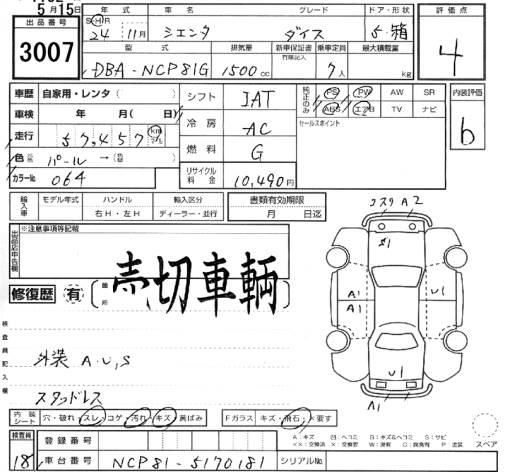 5月15日
出品番号 年式 グレード ドア・形状 評価点
3007
SHR 24年 11月 シエンタ ダイス 5・箱
4
型式 排気量 新車保証書 有無記入 乗車定員 最大積載量
DBA-NCP81G 1500cc 7人 kg
車歴 自家用・レンタ( ) シフト IAT 純正のみ PS PW AW SR 内装評価
ABS エアB TV ナビ
車検 年 月( 日) 冷房 AC セールスポイント b
走行 57,457 km マイル
色 パール→ 燃料 G
カラー№ 064 リサイクル料金 10,490円
輸入車 モデル年式 ハンドル 右H・左H 輸入区分 ディーラー・並行 書類有効期限 月 日迄
※注意事項等記載
コスリ A2
S1
修復歴 有 箇所 売切車輌
A1 U1
A1
検査員記入欄
外装 A.U,S
スタッドレス
A1
内装シート 穴・破れ・スレ・コゲ・汚れ・キズ・黄ばみ Fガラス キズ・飛石・×要す
A:キズ U:ヘコミ B:キズ&ヘコミ S:サビ
××:交換済 ×:交換要 W:波有 C:腐食有 P:塗装 スペア
検査員 18 登録番号
車台番号 NCP81-5170181 シリアル№